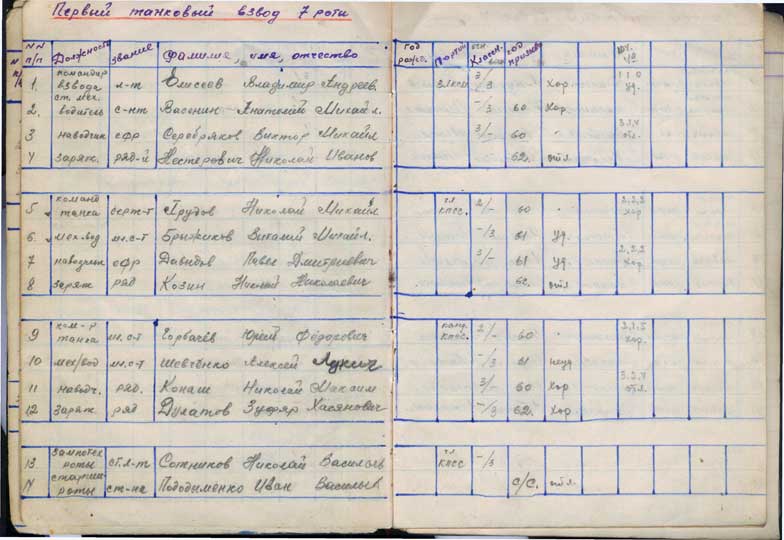 Первый танковый взвод 7 роты
NN п/п Должность звание фамилия, имя, отчество год рожд. Партий. Класси. год призыва
1. командир взвода л-т Елисеев Владимир Андреев. ВЛКСМ 3/3 Хор. 1.1.0 уд.
2. ст. мех. водитель с-нт Васенин Анатолий Михайл. -/3 60 Хор.
3 наводчик ефр Серебряков Виктор Михайл 3/- 60 " 3.3.4 отл.
4 заряж. ряд-й Нестерович Николай Иванов 62г. отл
5 команд танка серж-т Трудов Николай Михайл чл КПСС. 2/- 60 " 2.2.2 хор
6. мех.вод мл.с-т Брыжиков Виталий Михайл. -/3 61 уд.
7 наводчик ефр Давыдов Павел Дмитриевич 3/- 61 уд. 2.2.2 хор.
8 заряж ряд Козин Николаевич 62. отл
9 ком-р танка мл.с-т Горбачёв Юрий Фёдорович канд. КПСС. 2/- 60 " Хор.
10 мех/вод мл.с-т Шевченко Алексей Лукич -/3 61 неуд
11 наводч. ряд. Конаш Николай Максим 3/- 60 хор 3.2.4 отл.
12 заряж. ряд Дулатов Зуфяр Хасянович -/3 62г. Хор
13. зампотех роты ст.л-т Сотников Николай Васильев чл КПСС -/3
N старшин роты ст-на Пододыменко Иван Васильев с/с. отл.